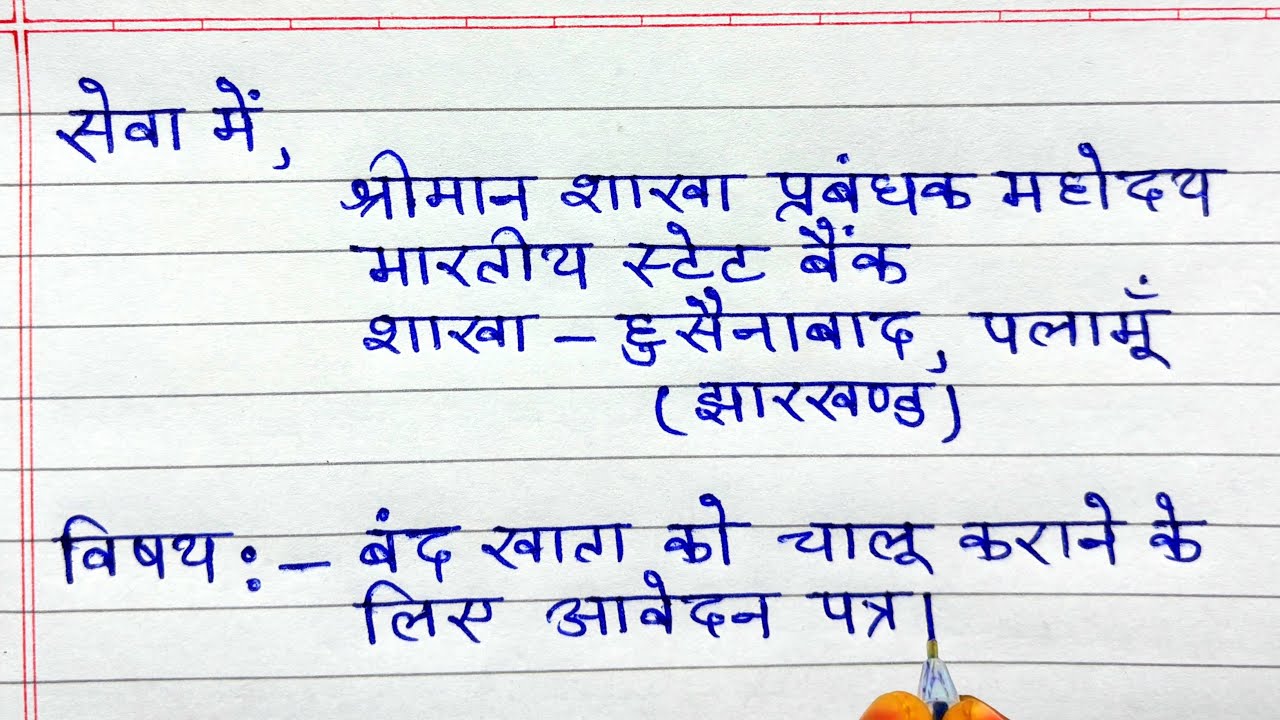 सेवा में,
श्रीमान शाखा प्रबंधक महोदय
भारतीय स्टेट बैंक
शाखा - हुसैनाबाद, पलामूँ
(झारखण्ड)
विषय :- बंद खाता को चालू कराने के
लिए आवेदन पत्र।